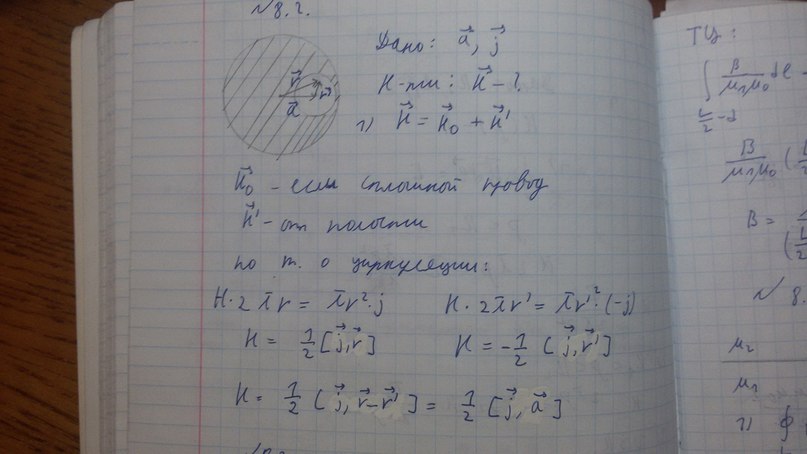 № 8.2.
r⃗
r⃗'
a⃗
Дано: a⃗, j⃗
Н-ти: H⃗ - ?
1) H⃗ = H⃗₀ + H⃗'
H⃗₀ - если сплошной провод
H⃗' - от полости
по т. о циркуляции:
H·2πr = πr²·j H·2πr' = πr'²·(-j)
H = 1/2 [j⃗, r⃗] H = -1/2 [j⃗, r⃗']
H = 1/2 [j⃗, r⃗-r⃗'] = 1/2 [j⃗, a⃗]
ТЦ:
∫ B/μ₁μ₀ dl
L/2 - d
B/μ₁μ₀ (
B =
№ 8.
μ₂
μ₁
1) ∮